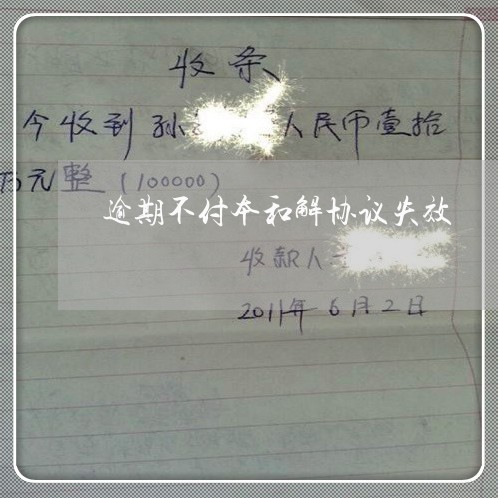 收条
今收到孙 人民币壹拾
万元整(100000)
逾期不付本和解协议失效
收款人
2011年6月2日